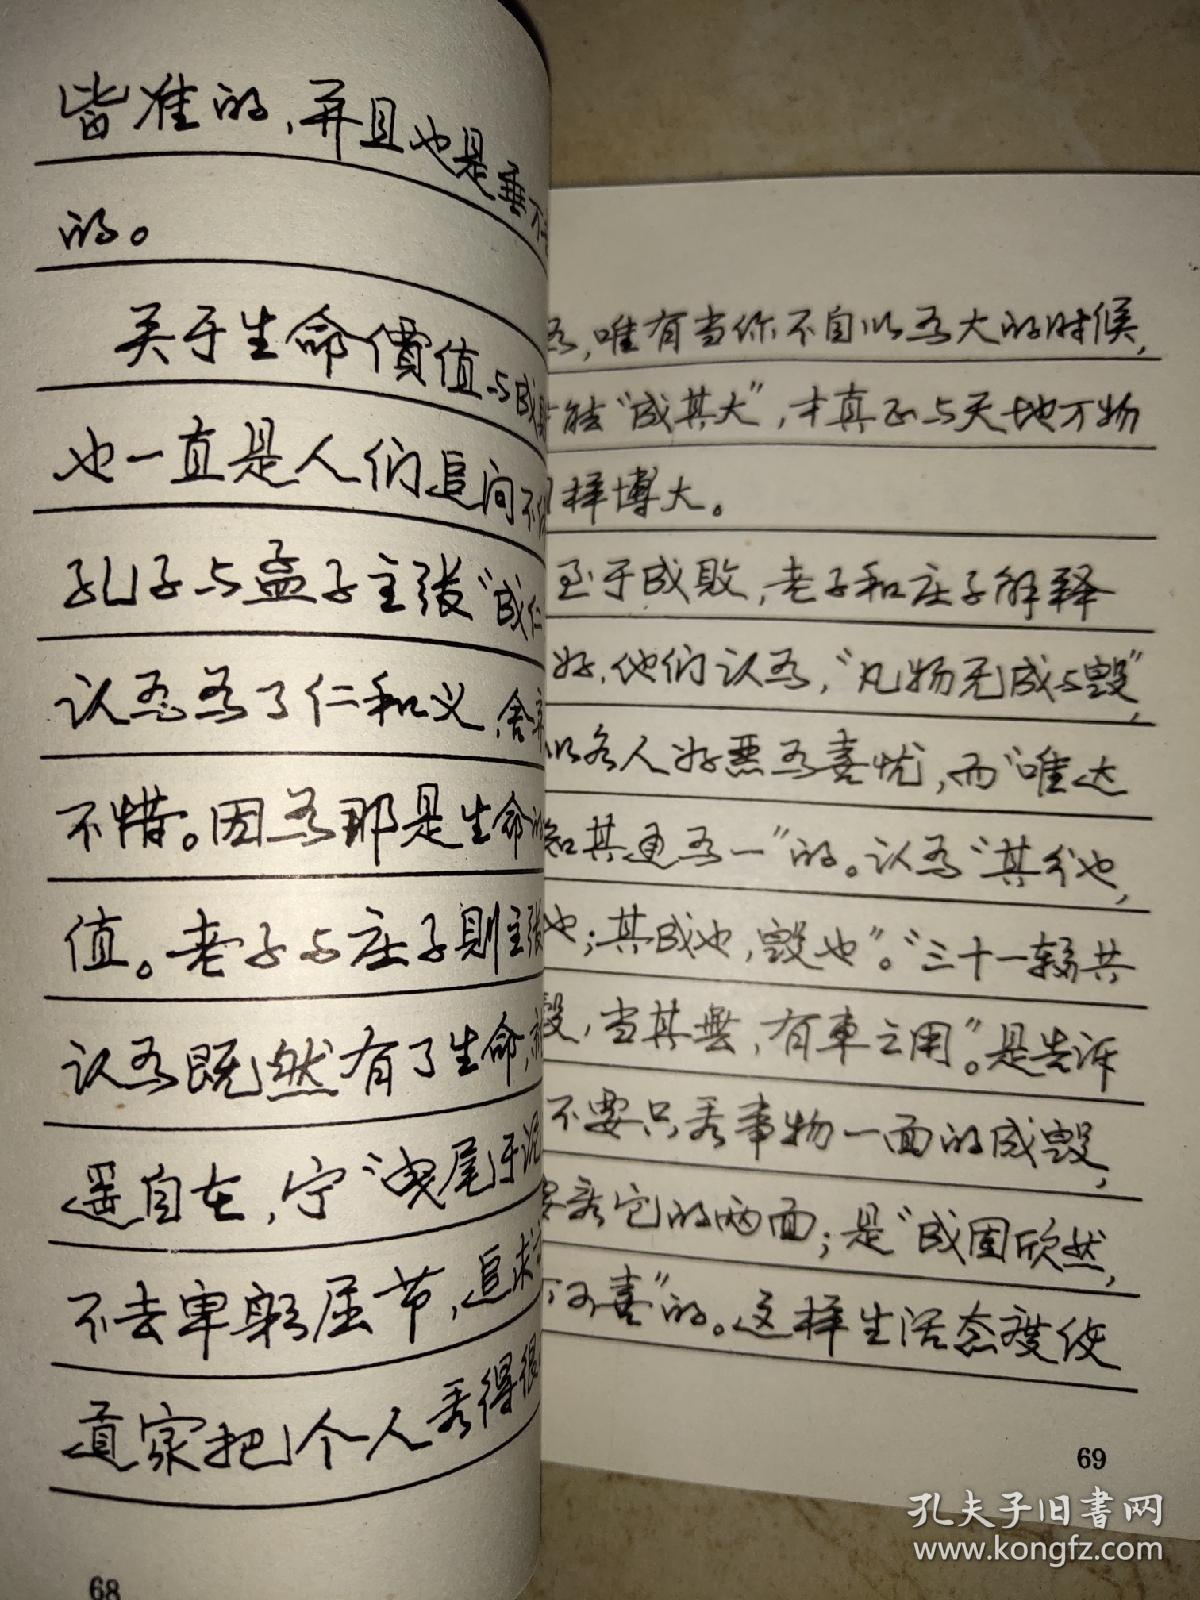 皆准的，并且也是垂
的。
关于生命價值与成
也一直是人们追问不
孔子与孟子主张“成仁
认为为了仁和义，舍
不惜。因为那是生命
值。老子与庄子则主张
认为既然有了生命，
遥自在，宁“曳尾于泥
不去卑躬屈节，追求
道家把个人看得很
68
为，唯有当你不自以为大的时候，
能“成其大”，才真正与天地万物
样博大。
至于成败，老子和庄子解释
好，他们认为，“凡物无成与毁”，
以各人好恶为喜忧，而“唯达
知其通为一”的。认为“其分也，
也；其成也，毁也”。“三十一辐共
毂，当其無，有車之用”。是告诉
不要只看事物一面的成毁，
看它的两面；是“成固欣然，
可喜”的。这样生活态度使
69
孔夫子旧书网
www.kongfz.com